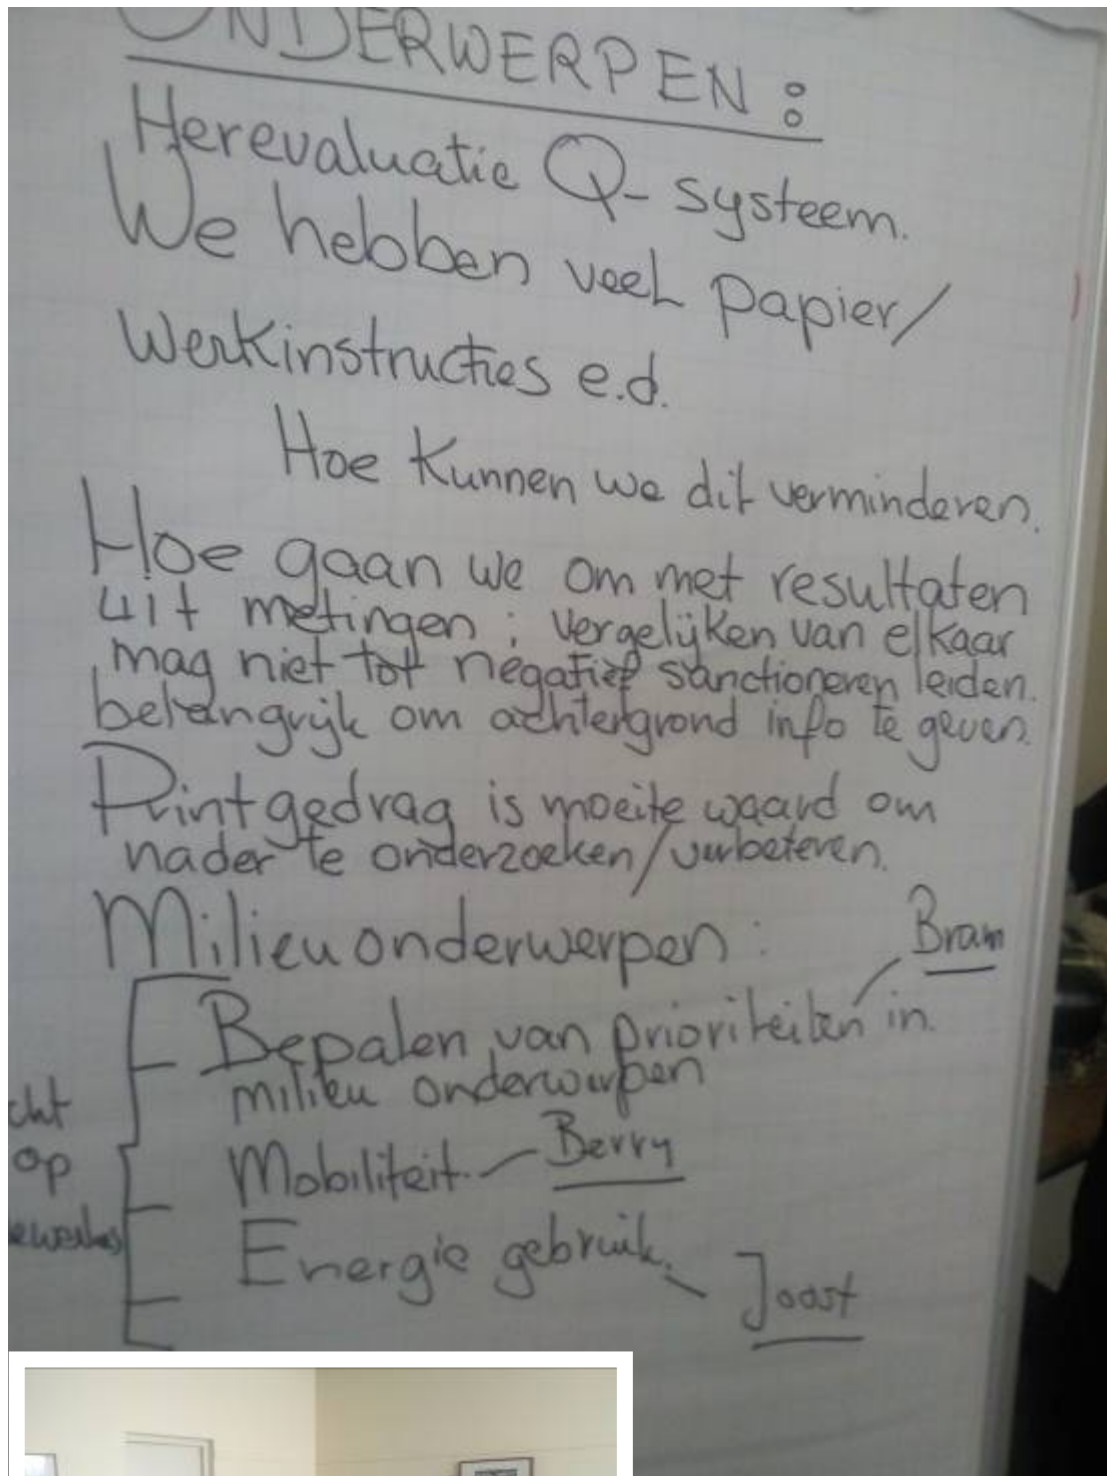 ONDERWERPEN:
Herevaluatie Q-systeem.
We hebben veel papier/
Werkinstructies e.d.
Hoe kunnen we dit verminderen.
Hoe gaan we om met resultaten
uit metingen; vergelijken van elkaar
mag niet tot negatief sanctioneren leiden.
belangrijk om achtergrond info te geven.
Printgedrag is moeite waard om
nader te onderzoeken/verbeteren.
Milieuonderwerpen:
Bram
Bepalen van prioriteiten in
milieu onderwerpen
cht
op
Mobiliteit. Berry
Energie gebruik.
Joost